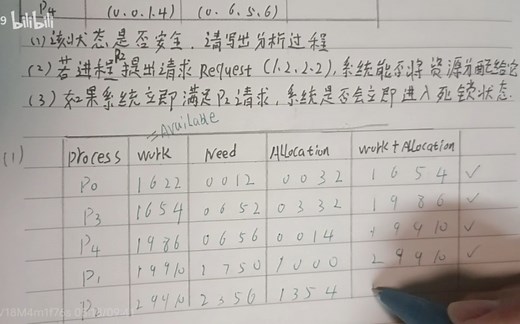 bilibili
P4 (0.0.1.4) (0.6.5.6)
(1) 该状态是否安全，请写出分析过程
(2) 若进程P2提出请求 Request (1.2.2.2), 系统能否将资源分配给它
(3) 如果系统立即满足P2请求, 系统是否会立即进入死锁状态.
=Available
(1) process work Need Allocation work+Allocation
P0 1 6 2 2 0 0 1 2 0 0 3 2 1 6 5 4 ✓
P3 1 6 5 4 0 6 5 2 0 3 3 2 1 9 8 6 ✓
P4 1 9 8 6 0 6 5 6 0 0 1 4 1 9 9 10 ✓
P1 1 9 9 10 1 7 5 0 1 0 0 0 2 9 9 10 ✓
P 2 9 9 10 2 3 5 6 1 3 5 4